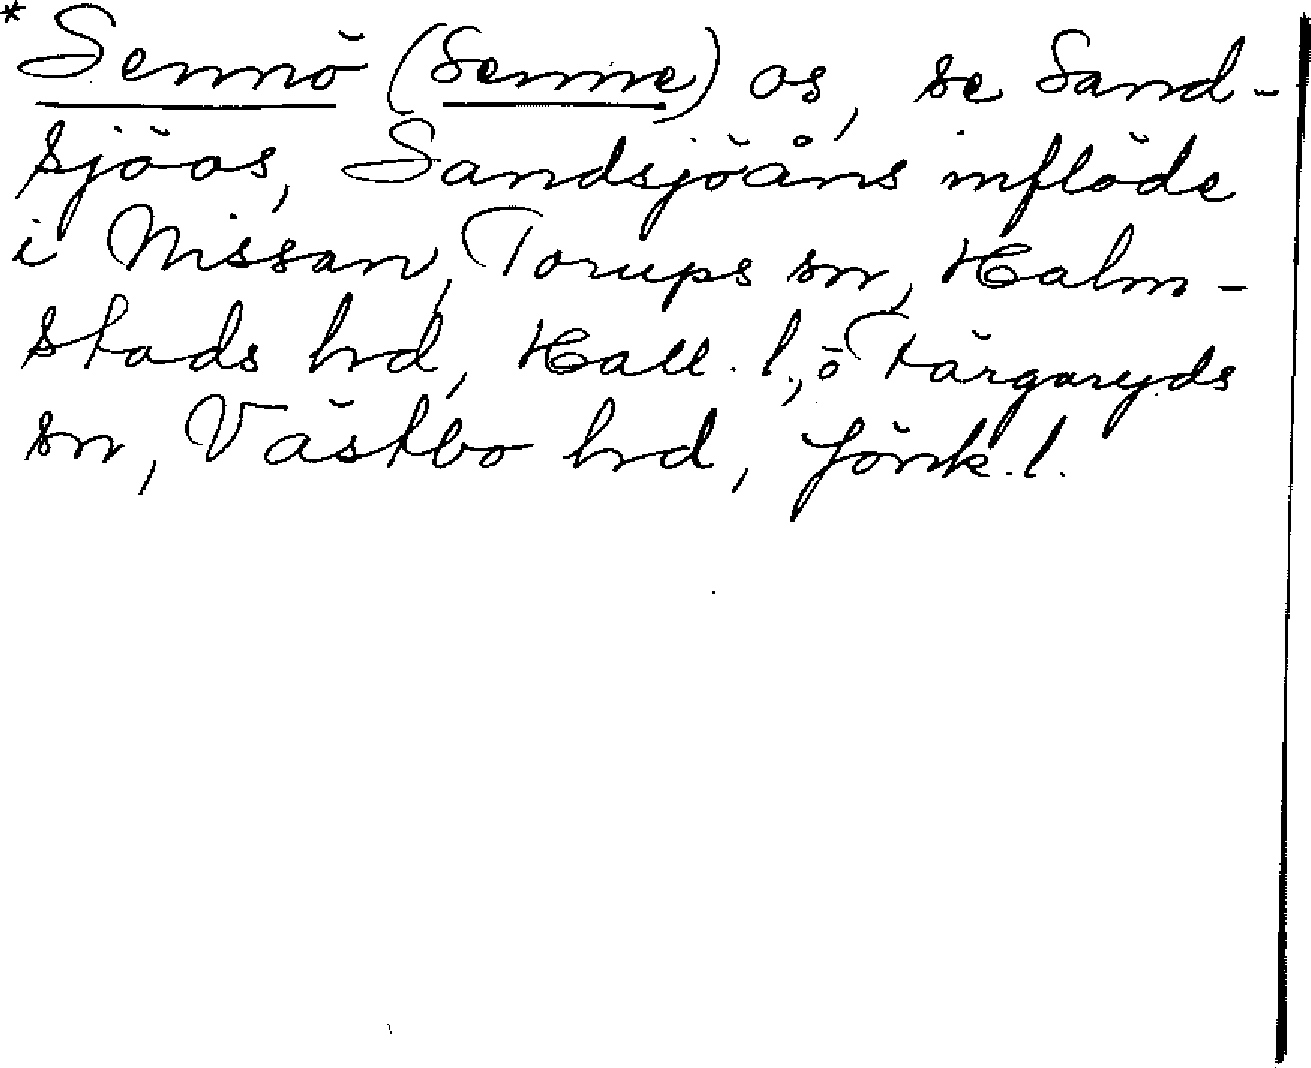 * Sennö (Senne) os, se Sand-
sjöos, Sandsjöåns inflöde
i Nissan, Torups sn, Halm-
stads hd, Hall. l., ö Färgaryds
sn, Västbo hd, Jönk. l.